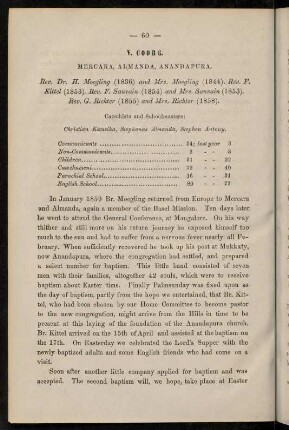 — 60 —
V. COORG.
MERCARA, ALMANDA, ANANDAPURA.
Rev. Dr. H. Moegling (1836) and Mrs. Moegling (1844). Rev. F.
Kittel (1853). Rev. F. Sauvain (1854) and Mrs. Sauvain (1853).
Rev. G. Richter (1855) and Mrs. Richter (1858).
Catechists and Schoolmasters:
Christian Kamsika, Stephanas Almanda, Stephen Antony,
Communicants 34; last year 3
Non-Communicants 2 „ „
Children 31 „ 20
Catechumens „ 40
Parochial School 16 „ 34
English School „ 77
In January 1859 Br. Moegling returned from Europe to Mercara
and Almanda, again a member of the Basel Mission. Ten days later
he went to attend the General Conference, at Mangalore. On his way
thither and still more on his return journey he exposed himself too
much to the sun and had to suffer from a nervous fever nearly all Fe-
bruary. When sufficiently recovered he took up his post at Mukkaty,
now Anandapura, where the congregation had settled, and prepared
a select number for baptism. This little band consisted of seven
men with their families, altogether 42 souls, which were to receive
baptism about Easter time. Finally Palmsunday was fixed upon as
the day of baptism, partly from the hope we entertained, that Br. Kit-
tel, who had been chosen by our Home Committee to become pastor
to the new congregation, might arrive from the Hills in time to be
present at this laying of the foundation of the Anandapura church.
Br. Kittel arrived on the 15th of April and assisted at the baptism on
the 17th. On Easterday we celebrated the Lord's Supper with the
newly baptized adults and some English friends who had come on a
visit.
Soon after another little company applied for baptism and was
accepted. The second baptism will, we hope, take place at Easter